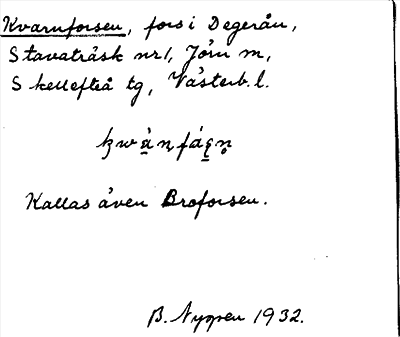 Kvarnforsen, fors i Degerån,
Stavaträsk nr 1, Jörn m,
Skellefteå tg, Västerb. l.
Kallas även Broforsen.
B. Nygren 1932.